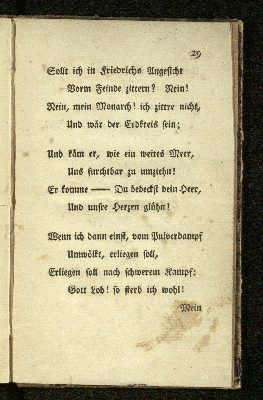 29
Sollt ich in Friedrichs Angesicht
Vorm Feinde zittern? Nein!
Nein, mein Monarch! ich zittre nicht,
Und wär der Erdkreis sein;
Und käm er, wie ein weites Meer,
Uns furchtbar zu umziehn!
Er komme — Du bedeckst dein Heer,
Und unsre Herzen glühn!
Wenn ich dann einst, vom Pulverdampf
Umwölkt, erliegen soll,
Erliegen soll nach schwerem Kampf:
Gott Lob! so sterb ich wohl!
Mein